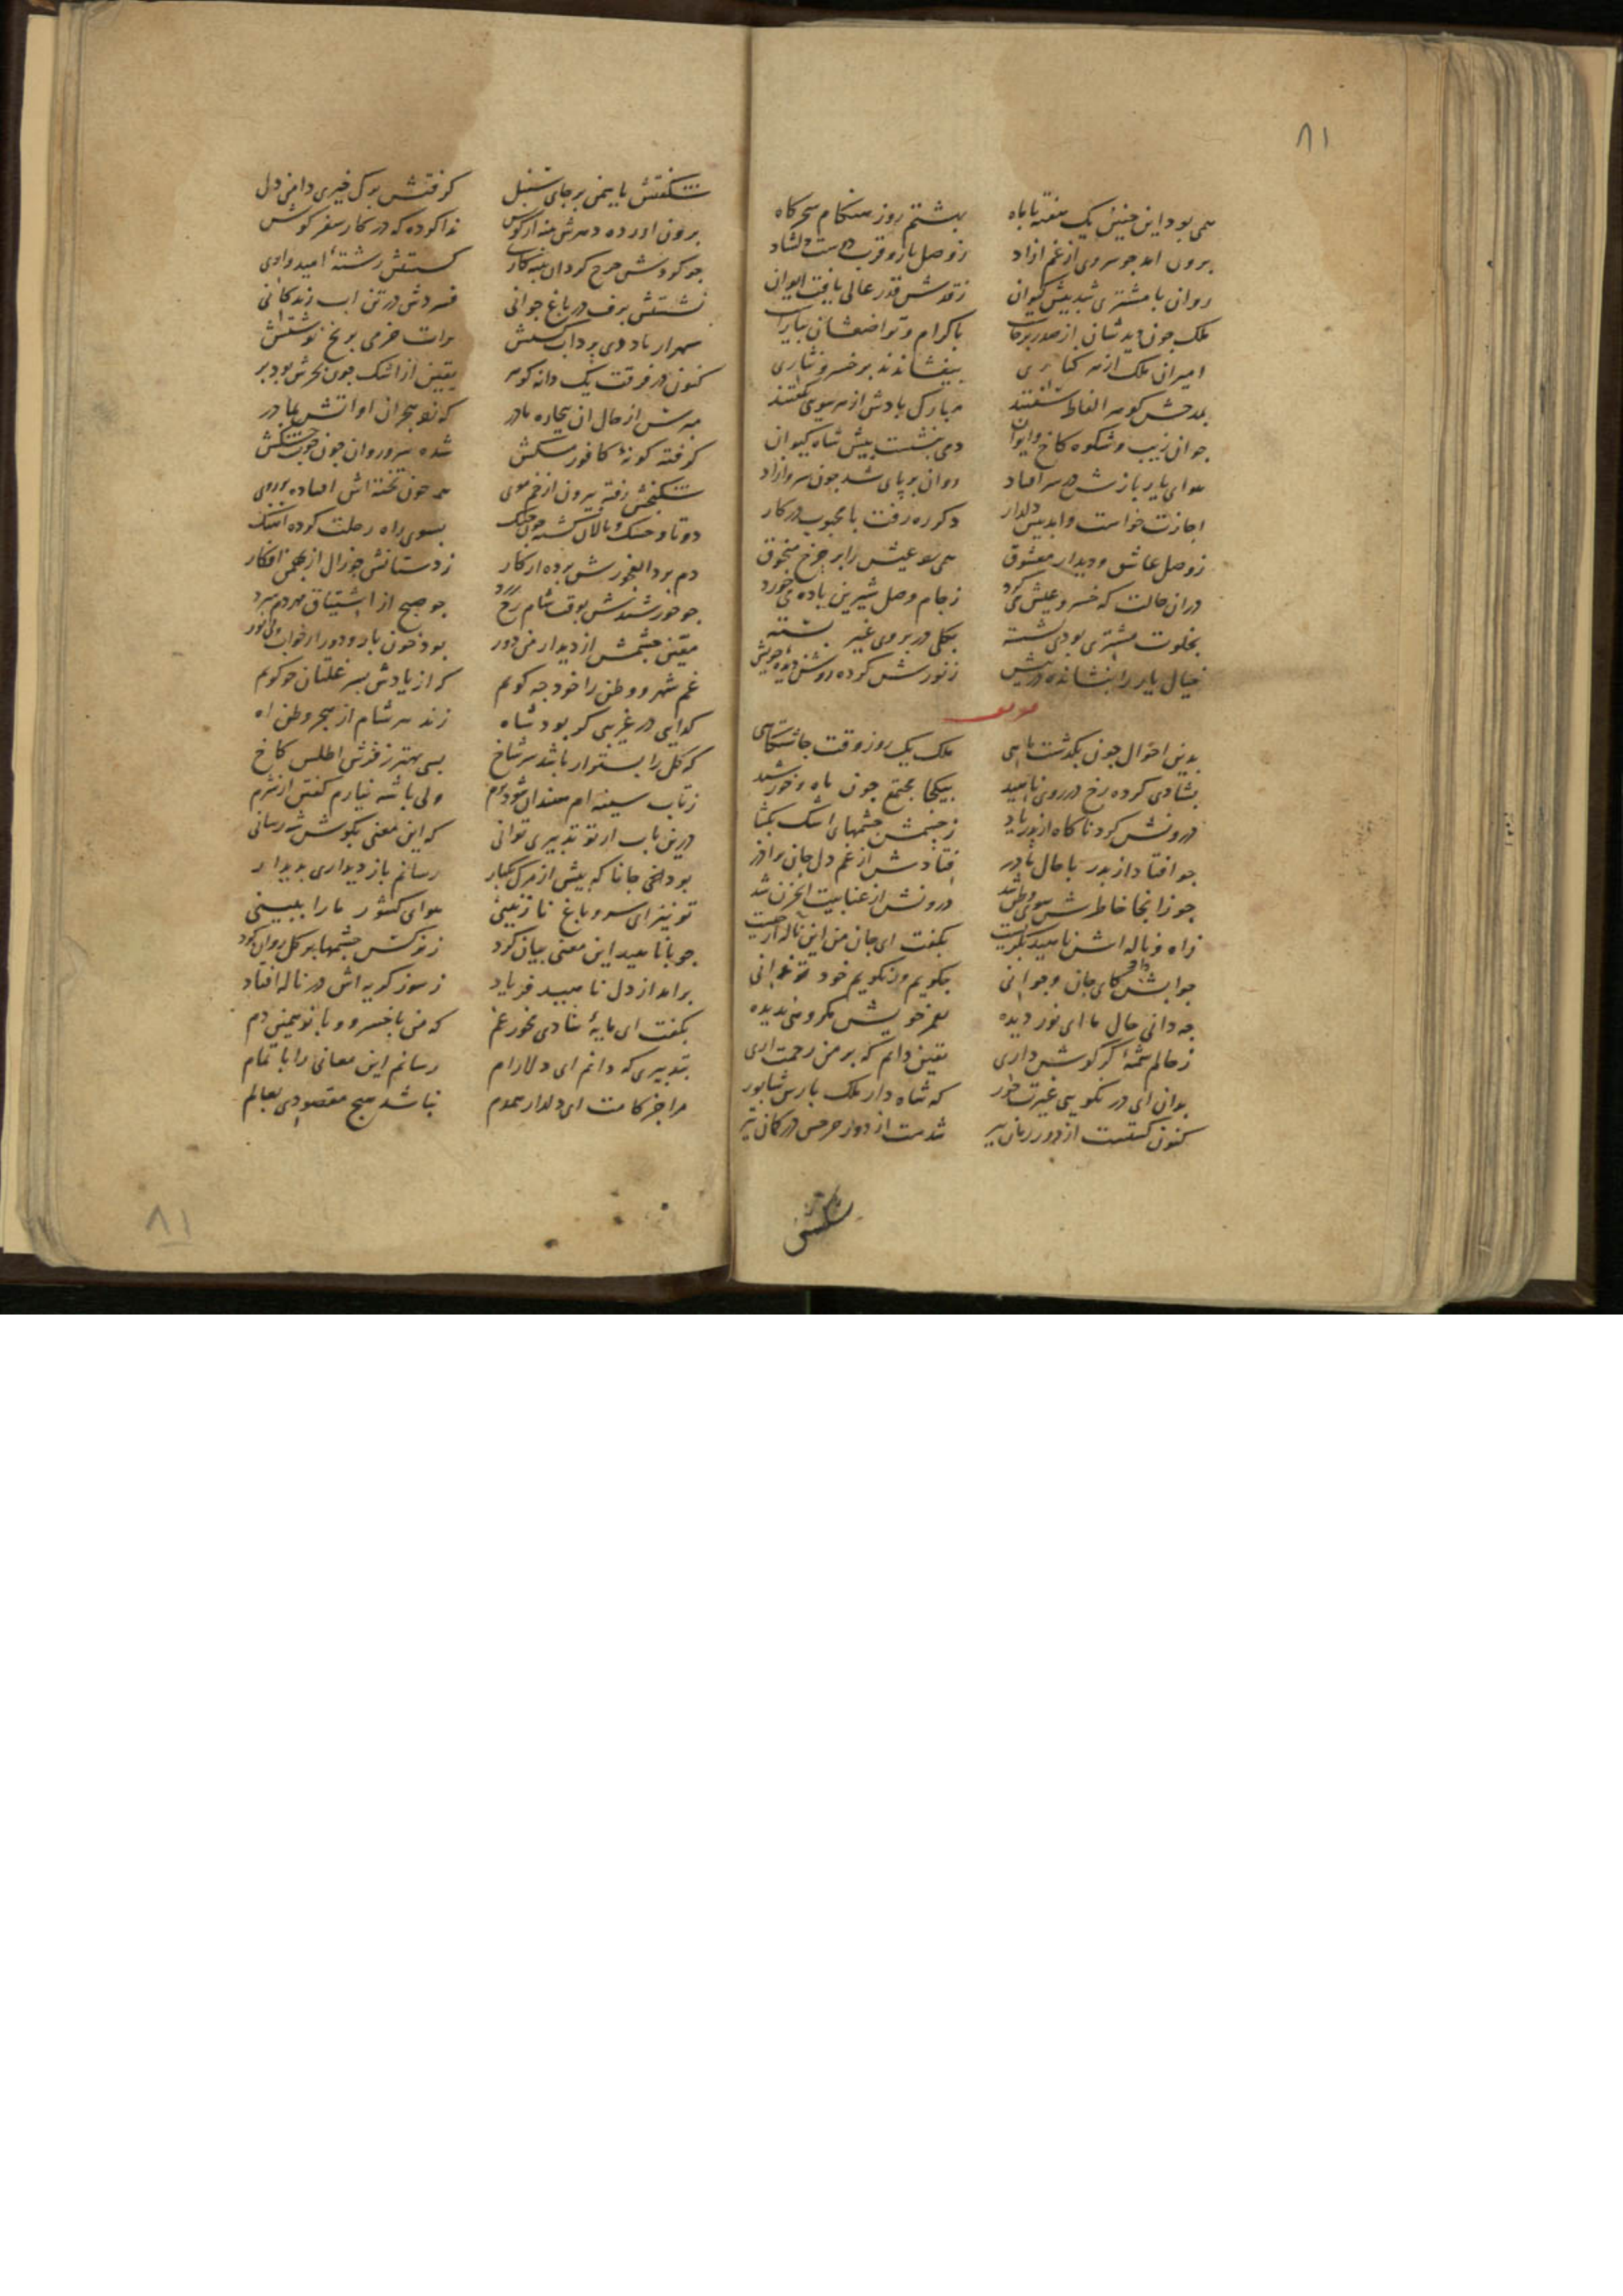 ۸۱
همی بود این چنین یک هفته با ماه بهشتم روز هنکام سحرکاه
برون امد جو سروی از غم ازاد ز وصل یار و قرب دوست دلشاد
روان با مشتری شد پیش کیوان ز قدش قدر عالی یافت ایوان
ملک چون دید شان از صدر برخاست باکرام و تواضعشان بیاراست
امیران ملک از هر کناری بیفشاندند بر خسرو نثاری
بمدحش کوهر الفاظ سفتند مبارک بادش از هر سوی کفتند
جوان زیب و شکوه کاخ و ایوان دمی بنشست پیش شاه کیوان
هوای یار بازش در سر افتاد روان بر پای شد چون سرو ازاد
اجازت خواست و امد پیش دلدار دکر ره رفت با محبوب در کار
ز وصل عاشق و دیدار معشوق همی شد عیش را بر چرخ منجوق
دران حالت که خسرو عیش می کرد ز جام وصل شیرین باده می خورد
بخلوت مشتری بودی نشسته بکلی در بروی غیر بسته
خیال یار را بنشانده در پیش ز نورش کرده روشن دیده خویش
بدین احوال چون بکذشت ماهی ملک یک روز وقت چاشتکاهی
بشادی کرده رخ در روی ناهید بیکجا مجتمع چون ماه و خورشید
درونش کرد ناکاه از پدر یاد ز چشمش چشمهای اشک بکشاد
جو افتاد از پدر با حال مادر فتادش از غم دل جان بر اذر
جو زانجا خاطرش سوی وطن شد درونش از عنا بیت الحزن شد
ز اه و ناله اش ناهید بکریست بکفت ای جان من این ناله از چیست
جوابش داد کای جان و جوانی بکویم ور نکویم خود تو دانی
چه دانی حال ما ای نور دیده بعمر خویش مکروهی ندیده
ز حالم شمهٔ کر کوش داری یقین دانم که بر من رحمت اری
بدان ای در نکویی غیرت حور که شاه دار ملک پارس شاپور
کنون کشتست از دور زمان پیر شدست از دور چرخش در کمان تیر
شکفتش
شکفتش یاسمین بر جای سنبل کرفتش برک خیری دامن کل
برون اورده دهرش پنبه از کوش ندا کرده که در کار سفر کوش
جو کردش چرخ کردان پنبه کاری کسستش رشتهٔ امیدواری
نشستش برف در باغ جوانی فسردش در تن اب زندکانی
برات خرمی بر یخ نوشتش
کنون در فرقت یک دانه کوهر یقین از اشک چون بحرش بود بر
مپرس از حال ان بیچاره مادر که شد هجران او اتش بمادر
کرفته کونهٔ کافور مشکش شده سرو روان چون چوب خشکش
شکنجش رفته بیرون از خم موی همه چون تخته اش افتاده بر روی
دوتا و خشک و نالان کشته چون چنک بسوی راه رحلت کرده اهنک
دم برد العجوزش برده از کار ز دستانش چو زال از بهمن افکار
جو خورشیدش بوقت شام رخ زرد جو صبح از اشتیاق مهر دم سرد
یقین چشمش از دیدار من دور بود خون بار و دور از خواب و بی نور
غم شهر و وطن را خود چه کویم که از یادش بسر غلتان چو کویم
کدایی در غریبی کر بود شاه زند هر شام از هجر وطن اه
که کل را بستر ار باشد سر شاخ بسی بهتر ز فرش اطلس کاخ
ز تاب سینه ام سندان شود نرم ولی با شه نیارم کفتن از شرم
درین باب ار تو تدبیری توانی که این معنی بکوش شه رسانی
بود لختی جانا که پیش از مرک یکبار رسانم باز دیداری بدیدار
تو نیز ای سرو باغ نازنینی هوای کشور ما را ببینی
جو با ناهید این معنی بیان کرد ز نرکس چشمها بر کل روان کرد
برامد از دل ناهید فریاد ز سوز کریه اش در ناله افتاد
بکفت ای مایهٔ شادی مخور غم که من با خسرو و بانو همین دم
بتدبیری که دانم ای دلارام رسانم این معانی را باتمام
مرا جز کامت ای دلدار همدم نباشد هیچ مقصودی بعالم
۸۱